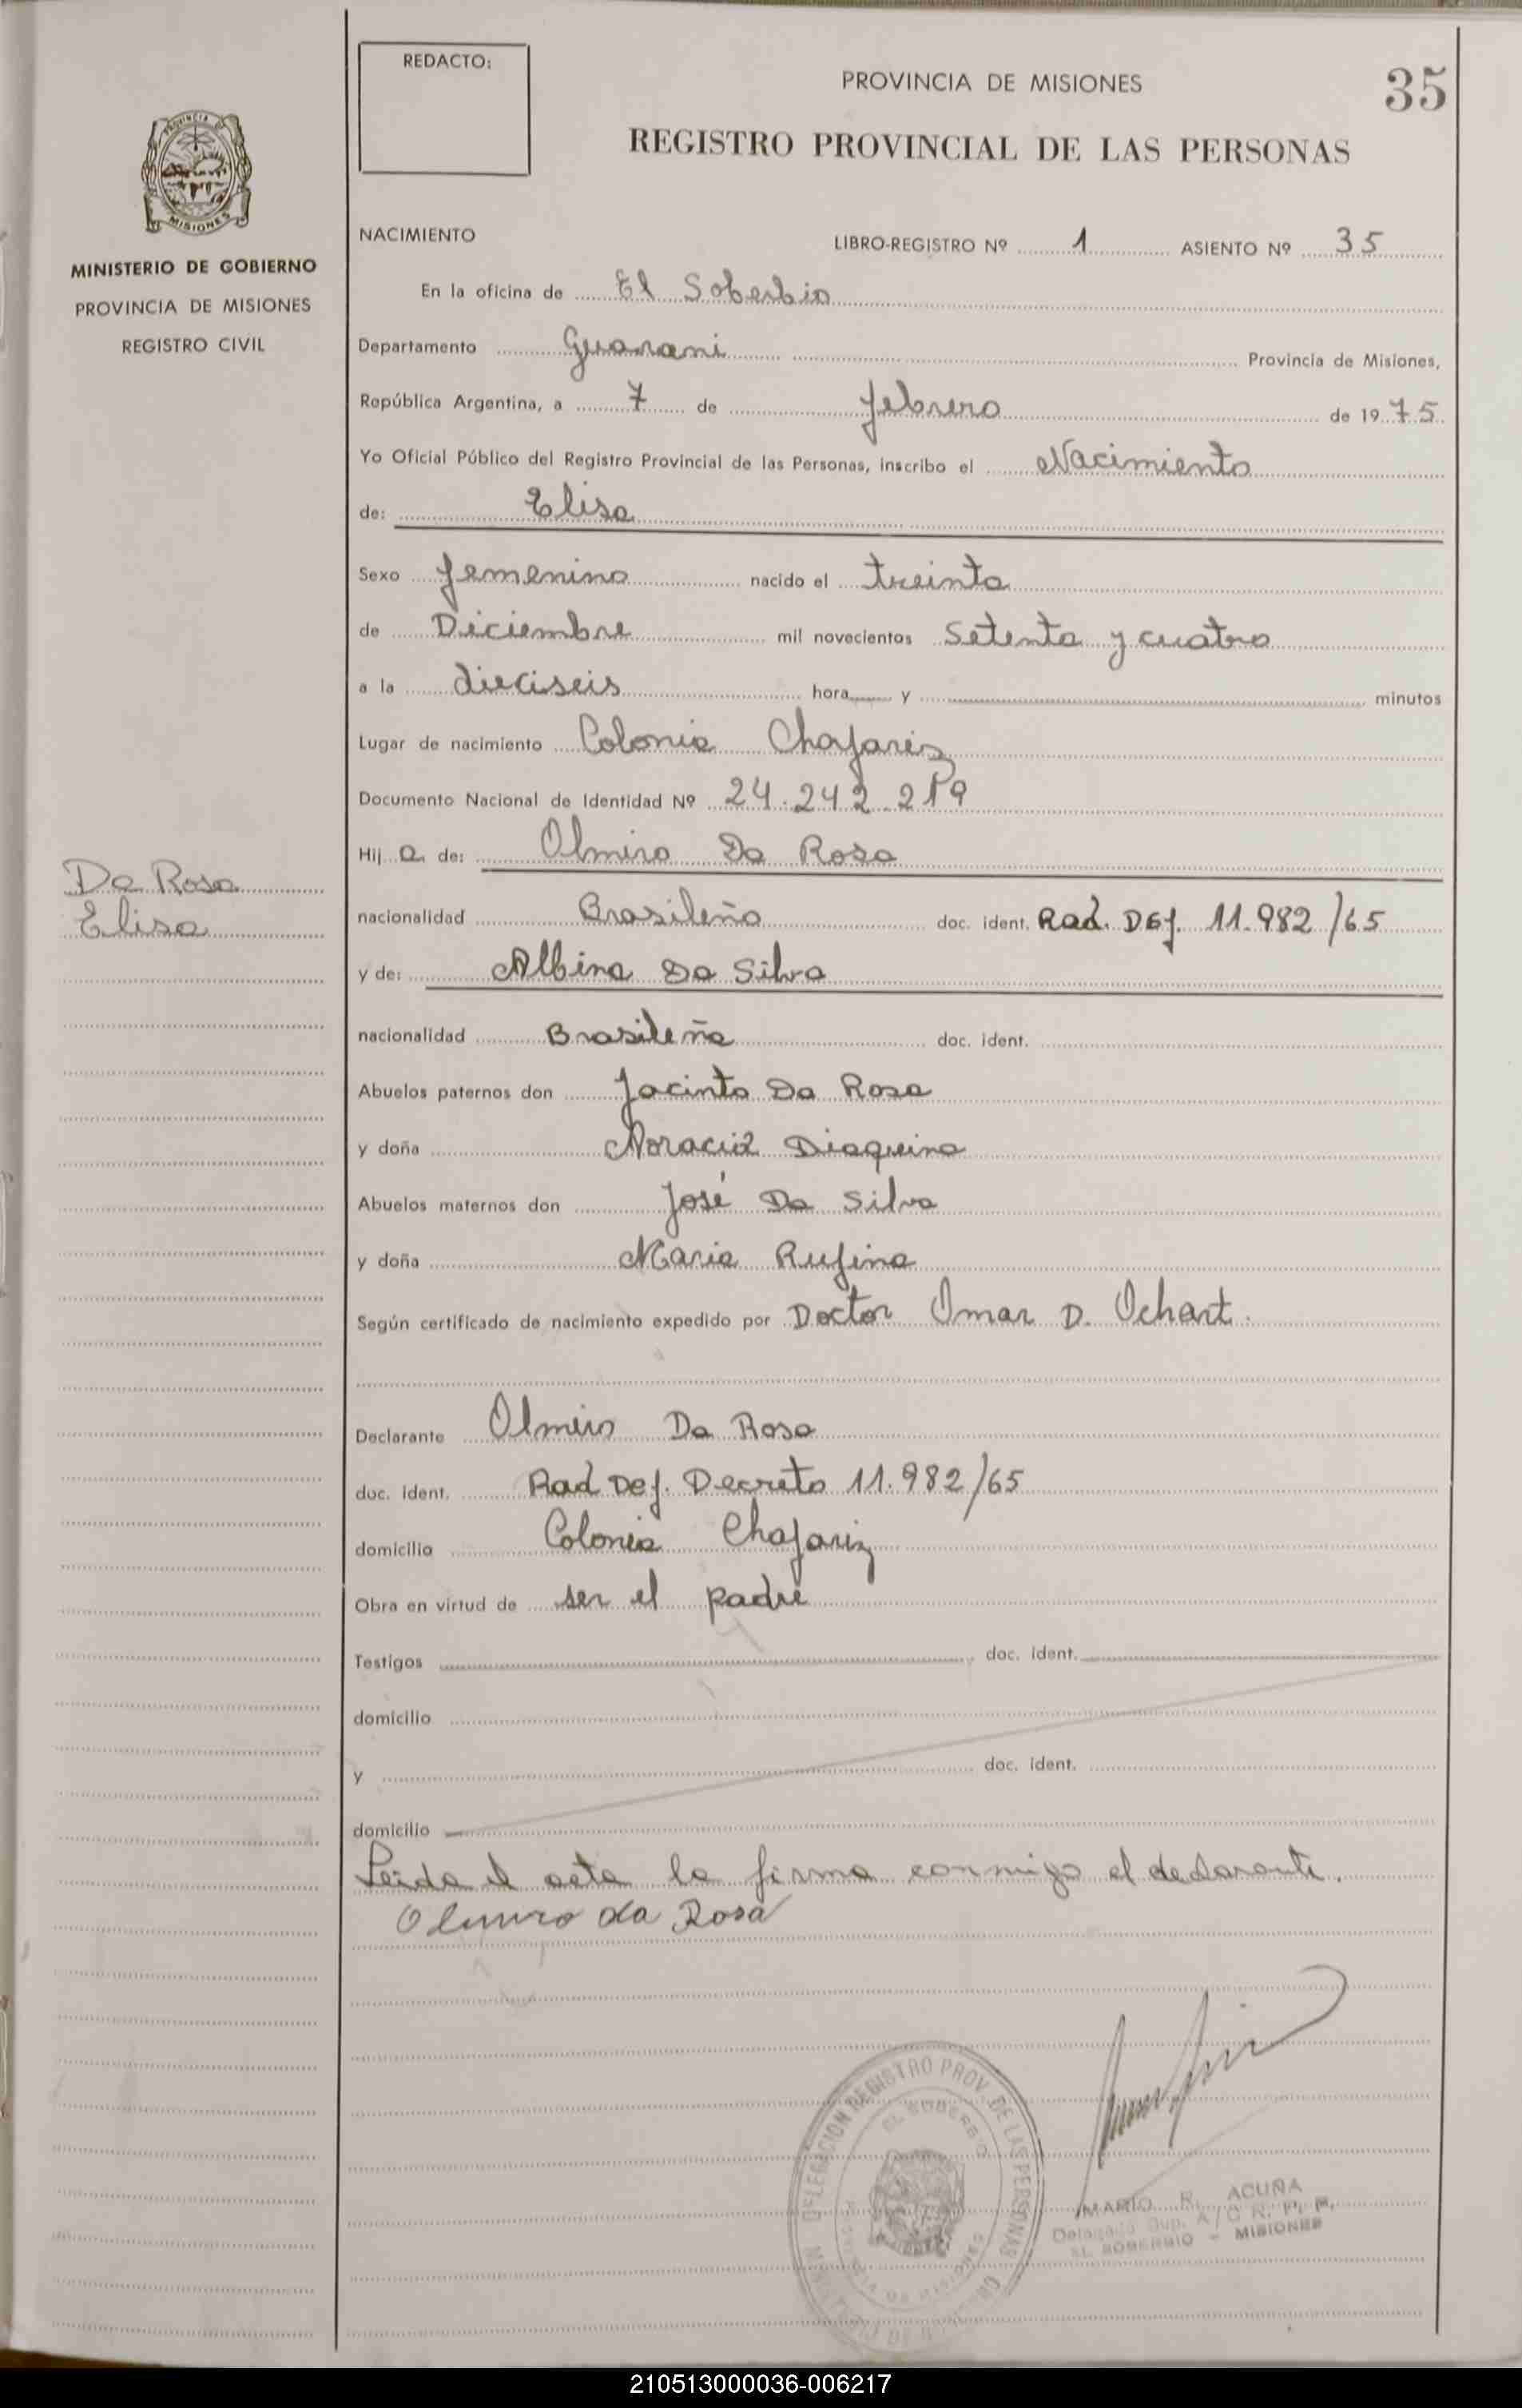 REDACTO:
PROVINCIA DE MISIONES
35
REGISTRO PROVINCIAL DE LAS PERSONAS
PROVINCIA DE
MISIONES
MINISTERIO DE GOBIERNO
PROVINCIA DE MISIONES
REGISTRO CIVIL
NACIMIENTO
LIBRO-REGISTRO Nº 1 ASIENTO Nº 35
En la oficina de El Soberbio
Departamento Guarani Provincia de Misiones,
República Argentina, a 7 de febrero de 1975
Yo Oficial Público del Registro Provincial de las Personas, inscribo el Nacimiento
de: Elisa
Sexo femenino nacido el treinta
de Diciembre mil novecientos Setenta y cuatro
a la dieciseis hora y minutos
Lugar de nacimiento Colonia Chafariz
Documento Nacional de Identidad Nº 24.242.219
Hija de: Olmiro Da Rosa
Da Rosa
Elisa
nacionalidad Brasileño doc. ident. Rad. Def. 11.982/65
y de: Albina Da Silva
nacionalidad Brasileña doc. ident.
Abuelos paternos don Jacinto Da Rosa
y doña Moracia Diaquina
Abuelos maternos don José Da Silva
y doña Maria Rufina
Según certificado de nacimiento expedido por Doctor Omar D. Ochart.
Declarante Olmiro Da Rosa
doc. ident. Rad Def. Decreto 11.982/65
domicilio Colonia Chafariz
Obra en virtud de ser el padre
Testigos doc. ident.
domicilio
y doc. ident.
domicilio
Leida el acta la firma conmigo el declarante.
Olmiro da Rosa
DELEGACION REGISTRO PROV. DE LAS PERSONAS
EL SOBERBIO
MARIO R. ACUÑA
Delegado Sup. A/C R. P. P.
EL SOBERBIO - MISIONES
210513000036-006217